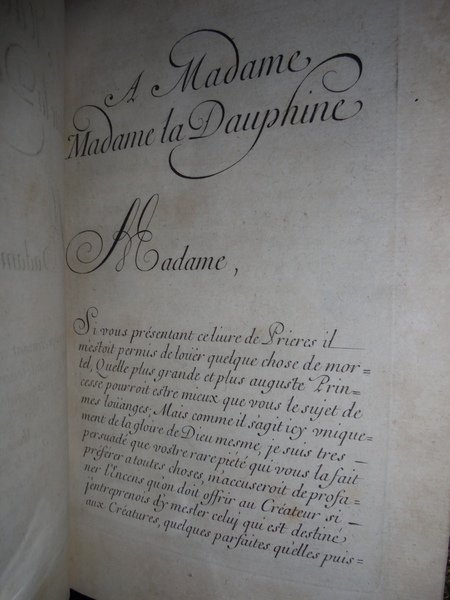 A Madame
Madame la Dauphine
Madame,
Si vous présentant ce liure de Prieres il
m'estoit permis de loüer quelque chose de mor=
tel, Quelle plus grande et plus auguste Prin=
cesse pourroit estre mieux que vous le sujet de
mes loüanges; Mais comme il s'agit icy vnique=
ment de la gloire de Dieu mesme, je suis tres
persuadé que vostre rare piété qui vous la fait
préférer a toutes choses, m'accuseroit de profa=
ner l'Encens qu'on doit offrir au Créateur si
j'entreprenois d'y mesler celuj qui est destiné
aux Créatures, quelques parfaites qu'elles puis=